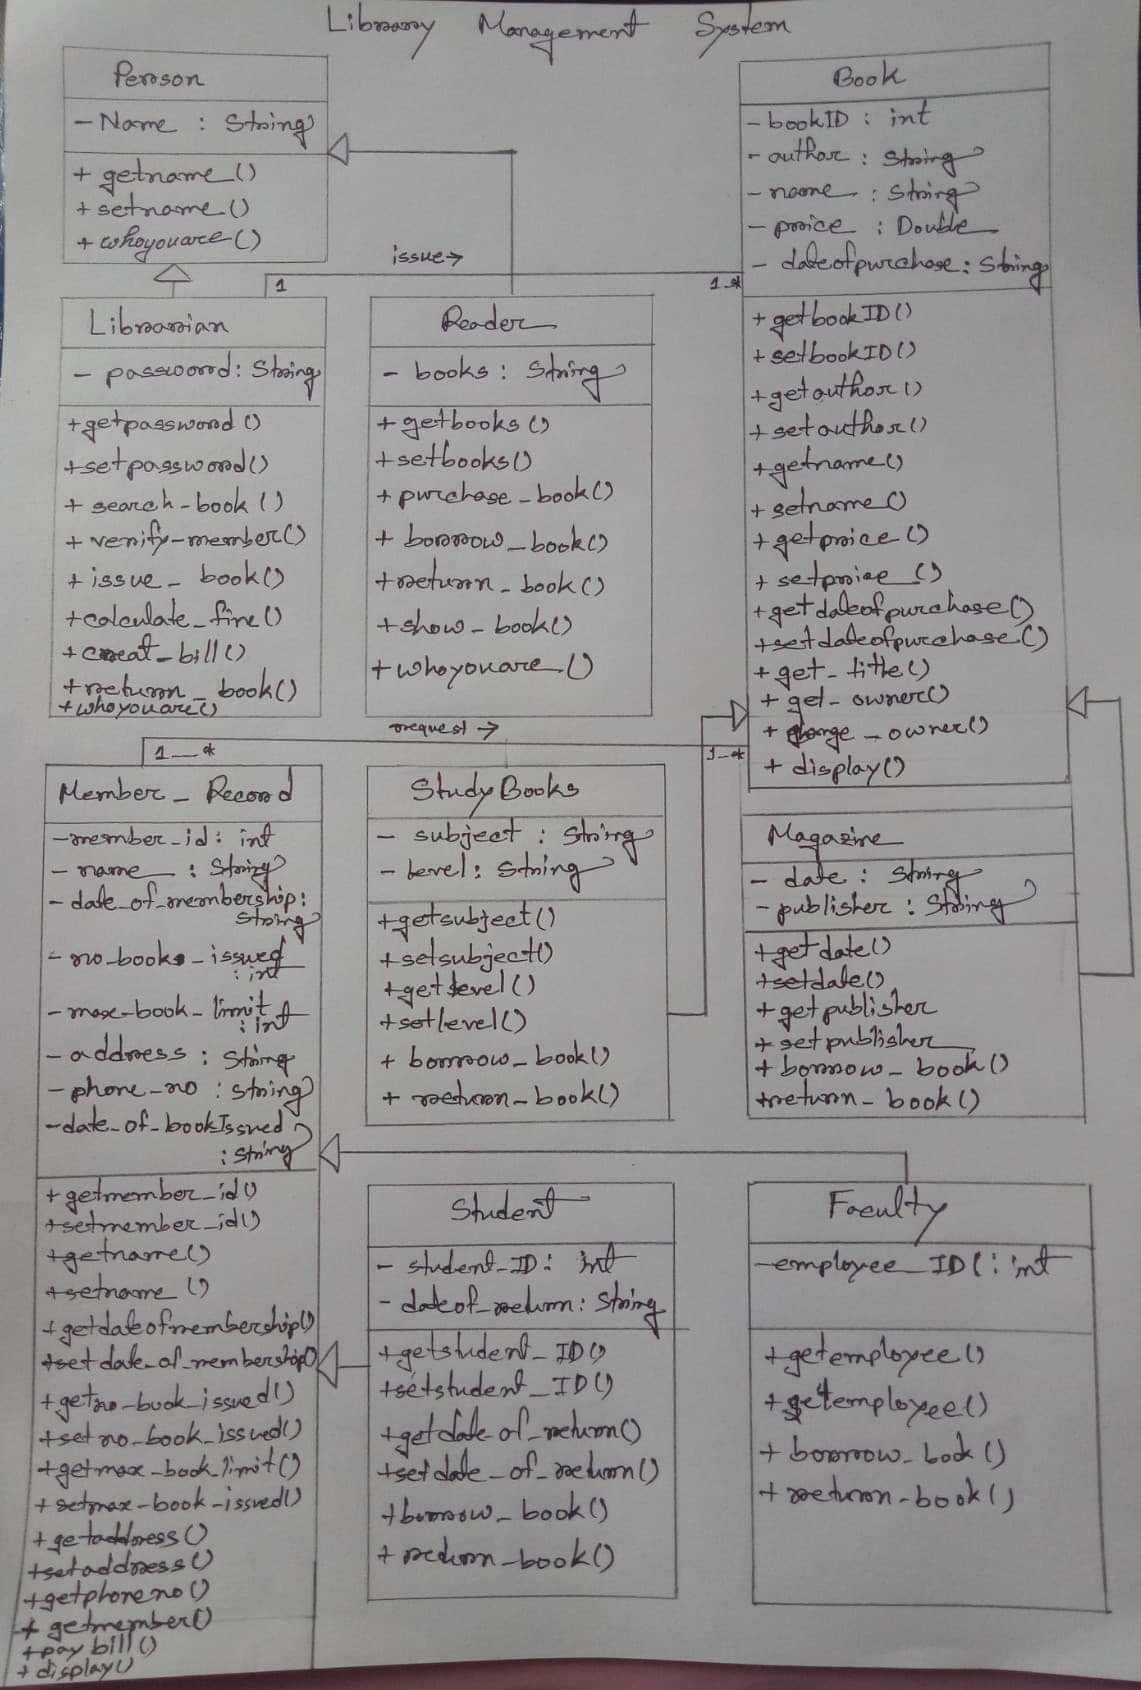 Library Management System
Person
- Name : String
+ getname()
+ setname()
+ whoyouare()
Book
- bookID : int
- author : String
- name : String
- price : Double
- dateofpurchase : String
+ getbookID()
+ setbookID()
+ getauthor()
+ setauthor()
+ getname()
+ setname()
+ getprice()
+ setprice()
+ getdateofpurchase()
+ setdateofpurchase()
+ get_title()
+ get_owner()
+ change_owner()
+ display()
issue →
1
1..*
Librarian
- password : String
+ getpassword()
+ setpassword()
+ search-book()
+ verify-member()
+ issue_book()
+ calculate_fine()
+ creat_bill()
+ return_book()
+ whoyouare()
Reader
- books : String
+ getbooks()
+ setbooks()
+ purchase_book()
+ borrow_book()
+ return_book()
+ show_book()
+ whoyouare()
request →
1..*
1..*
Member_Record
- member_id : int
- name : String
- date_of_membership :
String
- no_books_issued
: int
- max-book-limit
: int
- address : String
- phone_no : String
- date_of_bookIssued
: String
+ getmember_id()
+ setmember_id()
+ getname()
+ setname()
+ getdateofmembership()
+ set date_of_membership()
+ getno_book_issued()
+ set no_book_issued()
+ getmax_book_limit()
+ setmax-book-issued()
+ getaddress()
+ setaddress()
+ getphoneno()
+ getmember()
+ pay bill()
+ display()
StudyBooks
- subject : String
- level : String
+ getsubject()
+ setsubject()
+ getlevel()
+ setlevel()
+ borrow_book()
+ return_book()
Magazine
- date : String
- publisher : String
+ getdate()
+ setdate()
+ getpublisher
+ setpublisher
+ borrow_book()
+ return_book()
Student
- student_ID : int
- dateof_return : String
+ getstudent_ID()
+ setstudent_ID()
+ getdate_of_return()
+ setdate_of_return()
+ borrow_book()
+ return_book()
Faculty
- employee_ID( : int
+ getemployee()
+ getemployee()
+ borrow_book()
+ return-book()